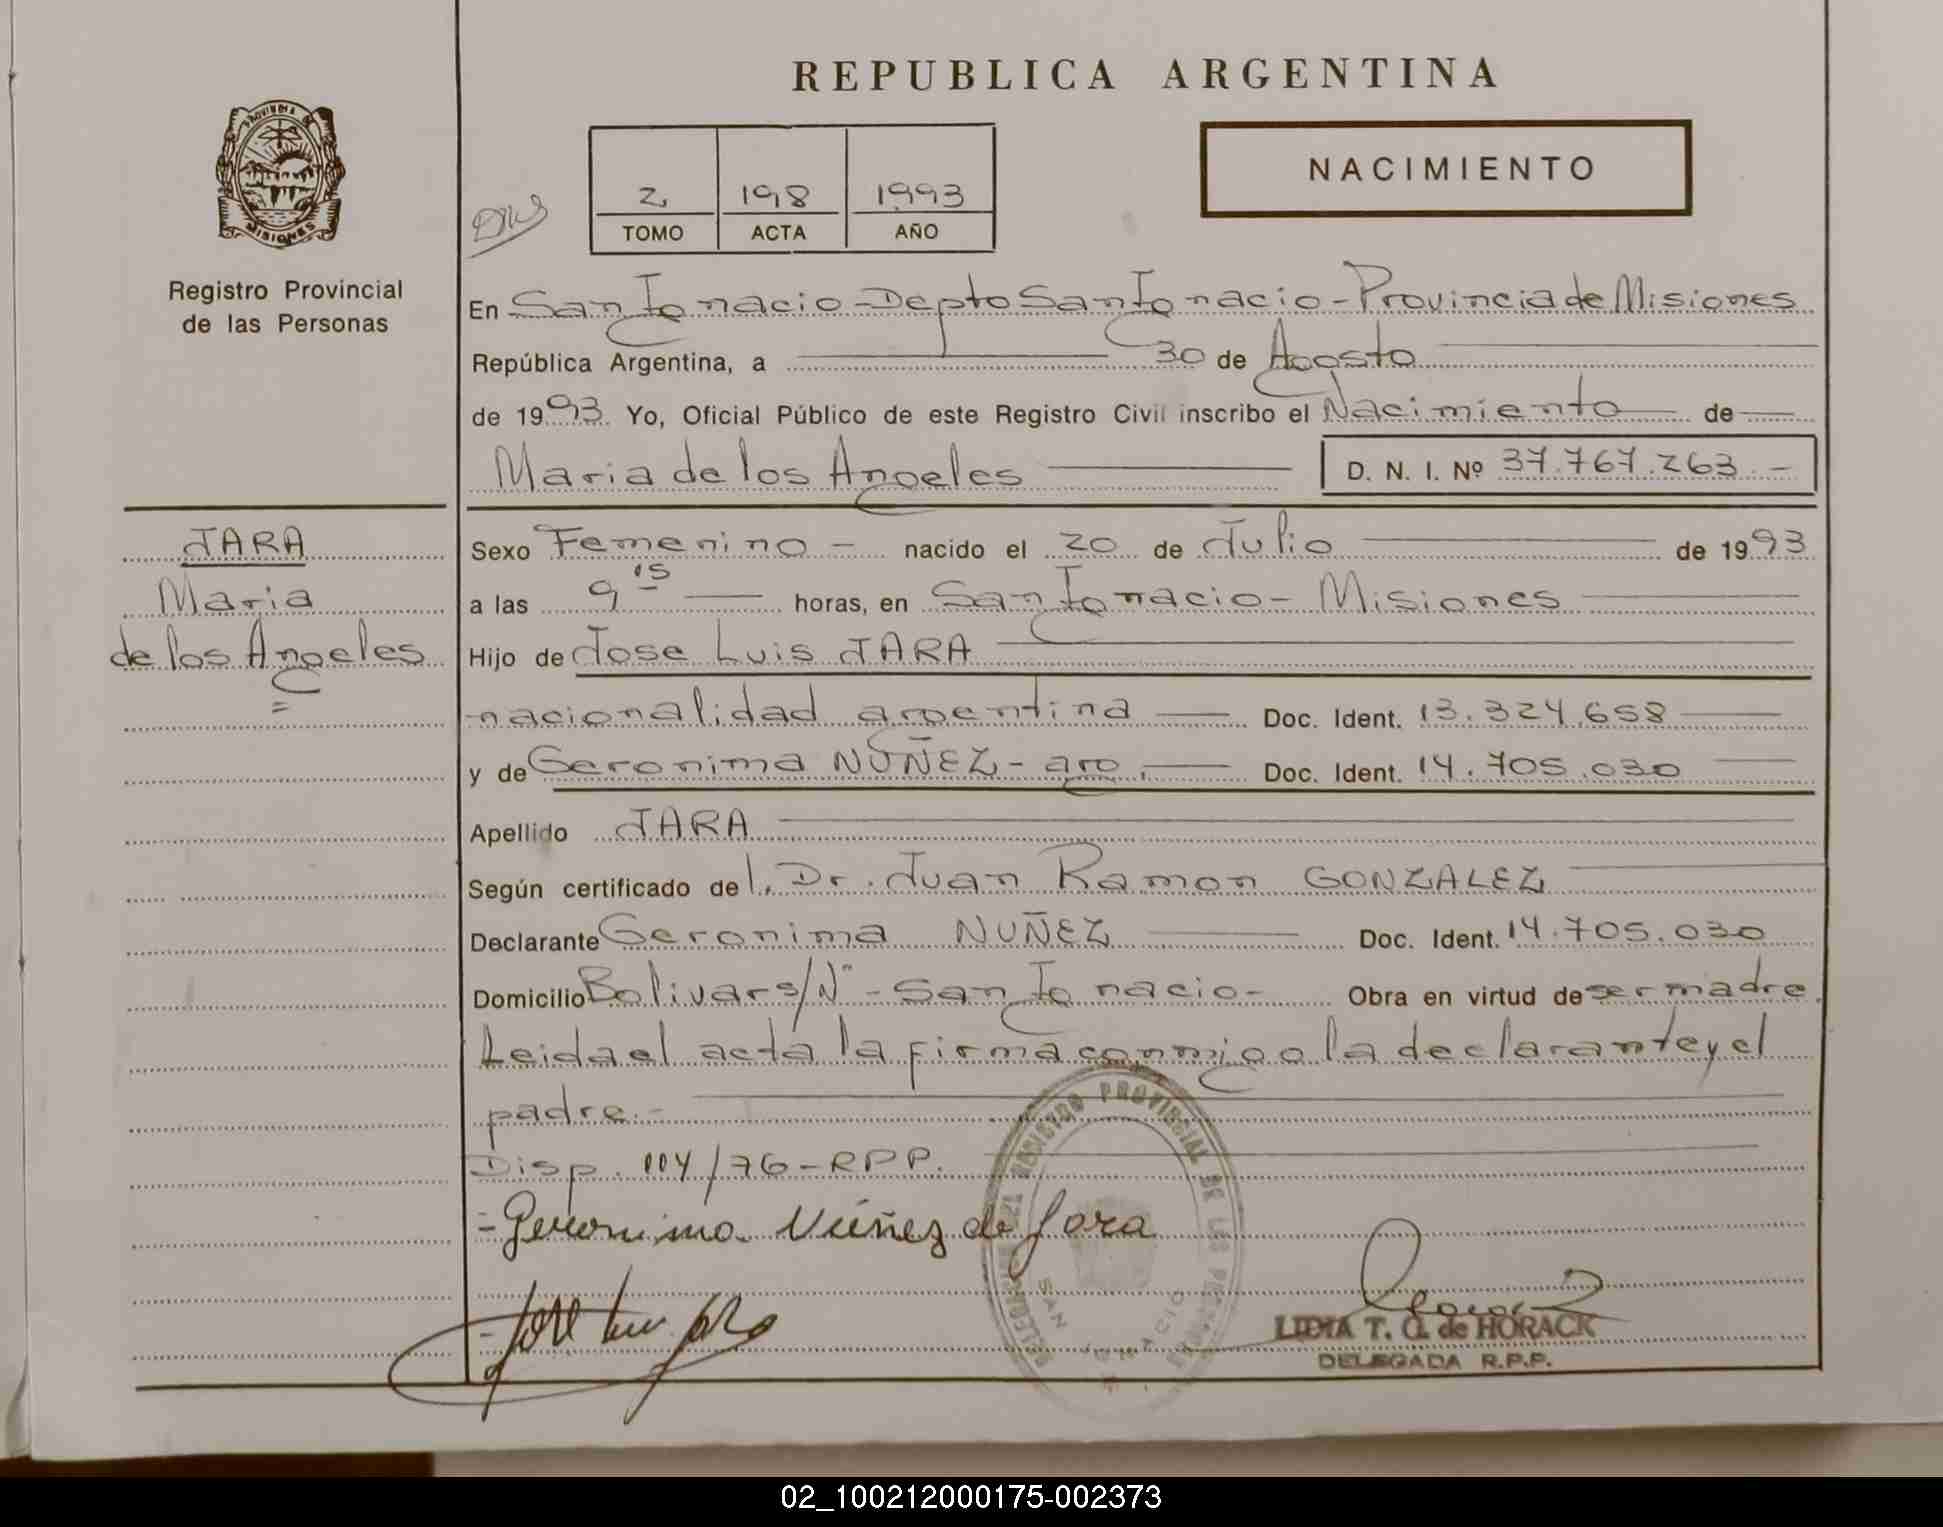 REPUBLICA ARGENTINA
PROVINCIA DE
MISIONES
Registro Provincial
de las Personas
2 198 1993
TOMO ACTA AÑO
NACIMIENTO
En San Ignacio - Depto San Ignacio - Provincia de Misiones
República Argentina, a 30 de Agosto
de 1993. Yo, Oficial Público de este Registro Civil inscribo el Nacimiento de
Maria de los Angeles D. N. I. Nº 37.767.263.-
JARA
Maria
de los Angeles
Sexo Femenino - nacido el 20 de Julio de 1993
a las 9 15 horas, en San Ignacio - Misiones
Hijo de Jose Luis JARA
nacionalidad argentina Doc. Ident. 13.324.658
y de Geronima NUÑEZ - arg. Doc. Ident. 14.705.030
Apellido JARA
Según certificado de l. Dr. Juan Ramon GONZALEZ
Declarante Geronima NUÑEZ Doc. Ident. 14.705.030
Domicilio Bolivar s/Nº - San Ignacio - Obra en virtud de ser madre.
Leida el acta la firma conmigo la declarante y el
padre.-
Disp. 114/76-RPP.
REGISTRO PROVINCIAL DE LAS PERSONAS
SAN IGNACIO
- Geronima Nuñez de Jara
- Jose Luis Jara
LIDIA T. G. de HORACK
DELEGADA R.P.P.
02_100212000175-002373